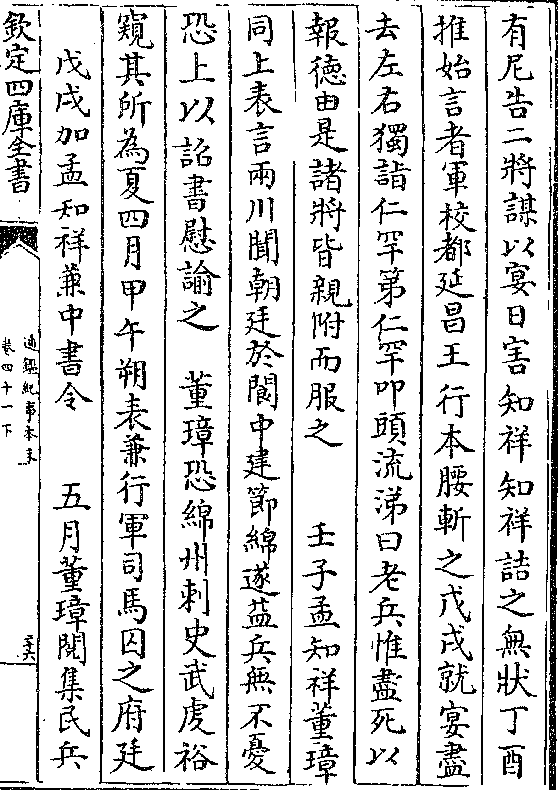 有尼告二將謀以宴日害知祥知祥詰之無狀丁酉
推始言者軍校都延昌王行本腰斬之戊戌就宴盡
去左右獨詣仁罕第仁罕叩頭流涕曰老兵惟盡死以
報德由是諸將皆親附而服之 壬子孟知祥董璋
同上表言兩川聞朝廷於閬中建節綿遂益兵無不憂
恐上以詔書慰諭之 董璋恐綿州刺史武䖍裕
窺其所為夏四月甲午朔表兼行軍司馬囚之府廷
戊戌加孟知祥兼中書令 五月董璋閱集民兵
欽定四庫全書
通鑑紀事本末
卷四十一下